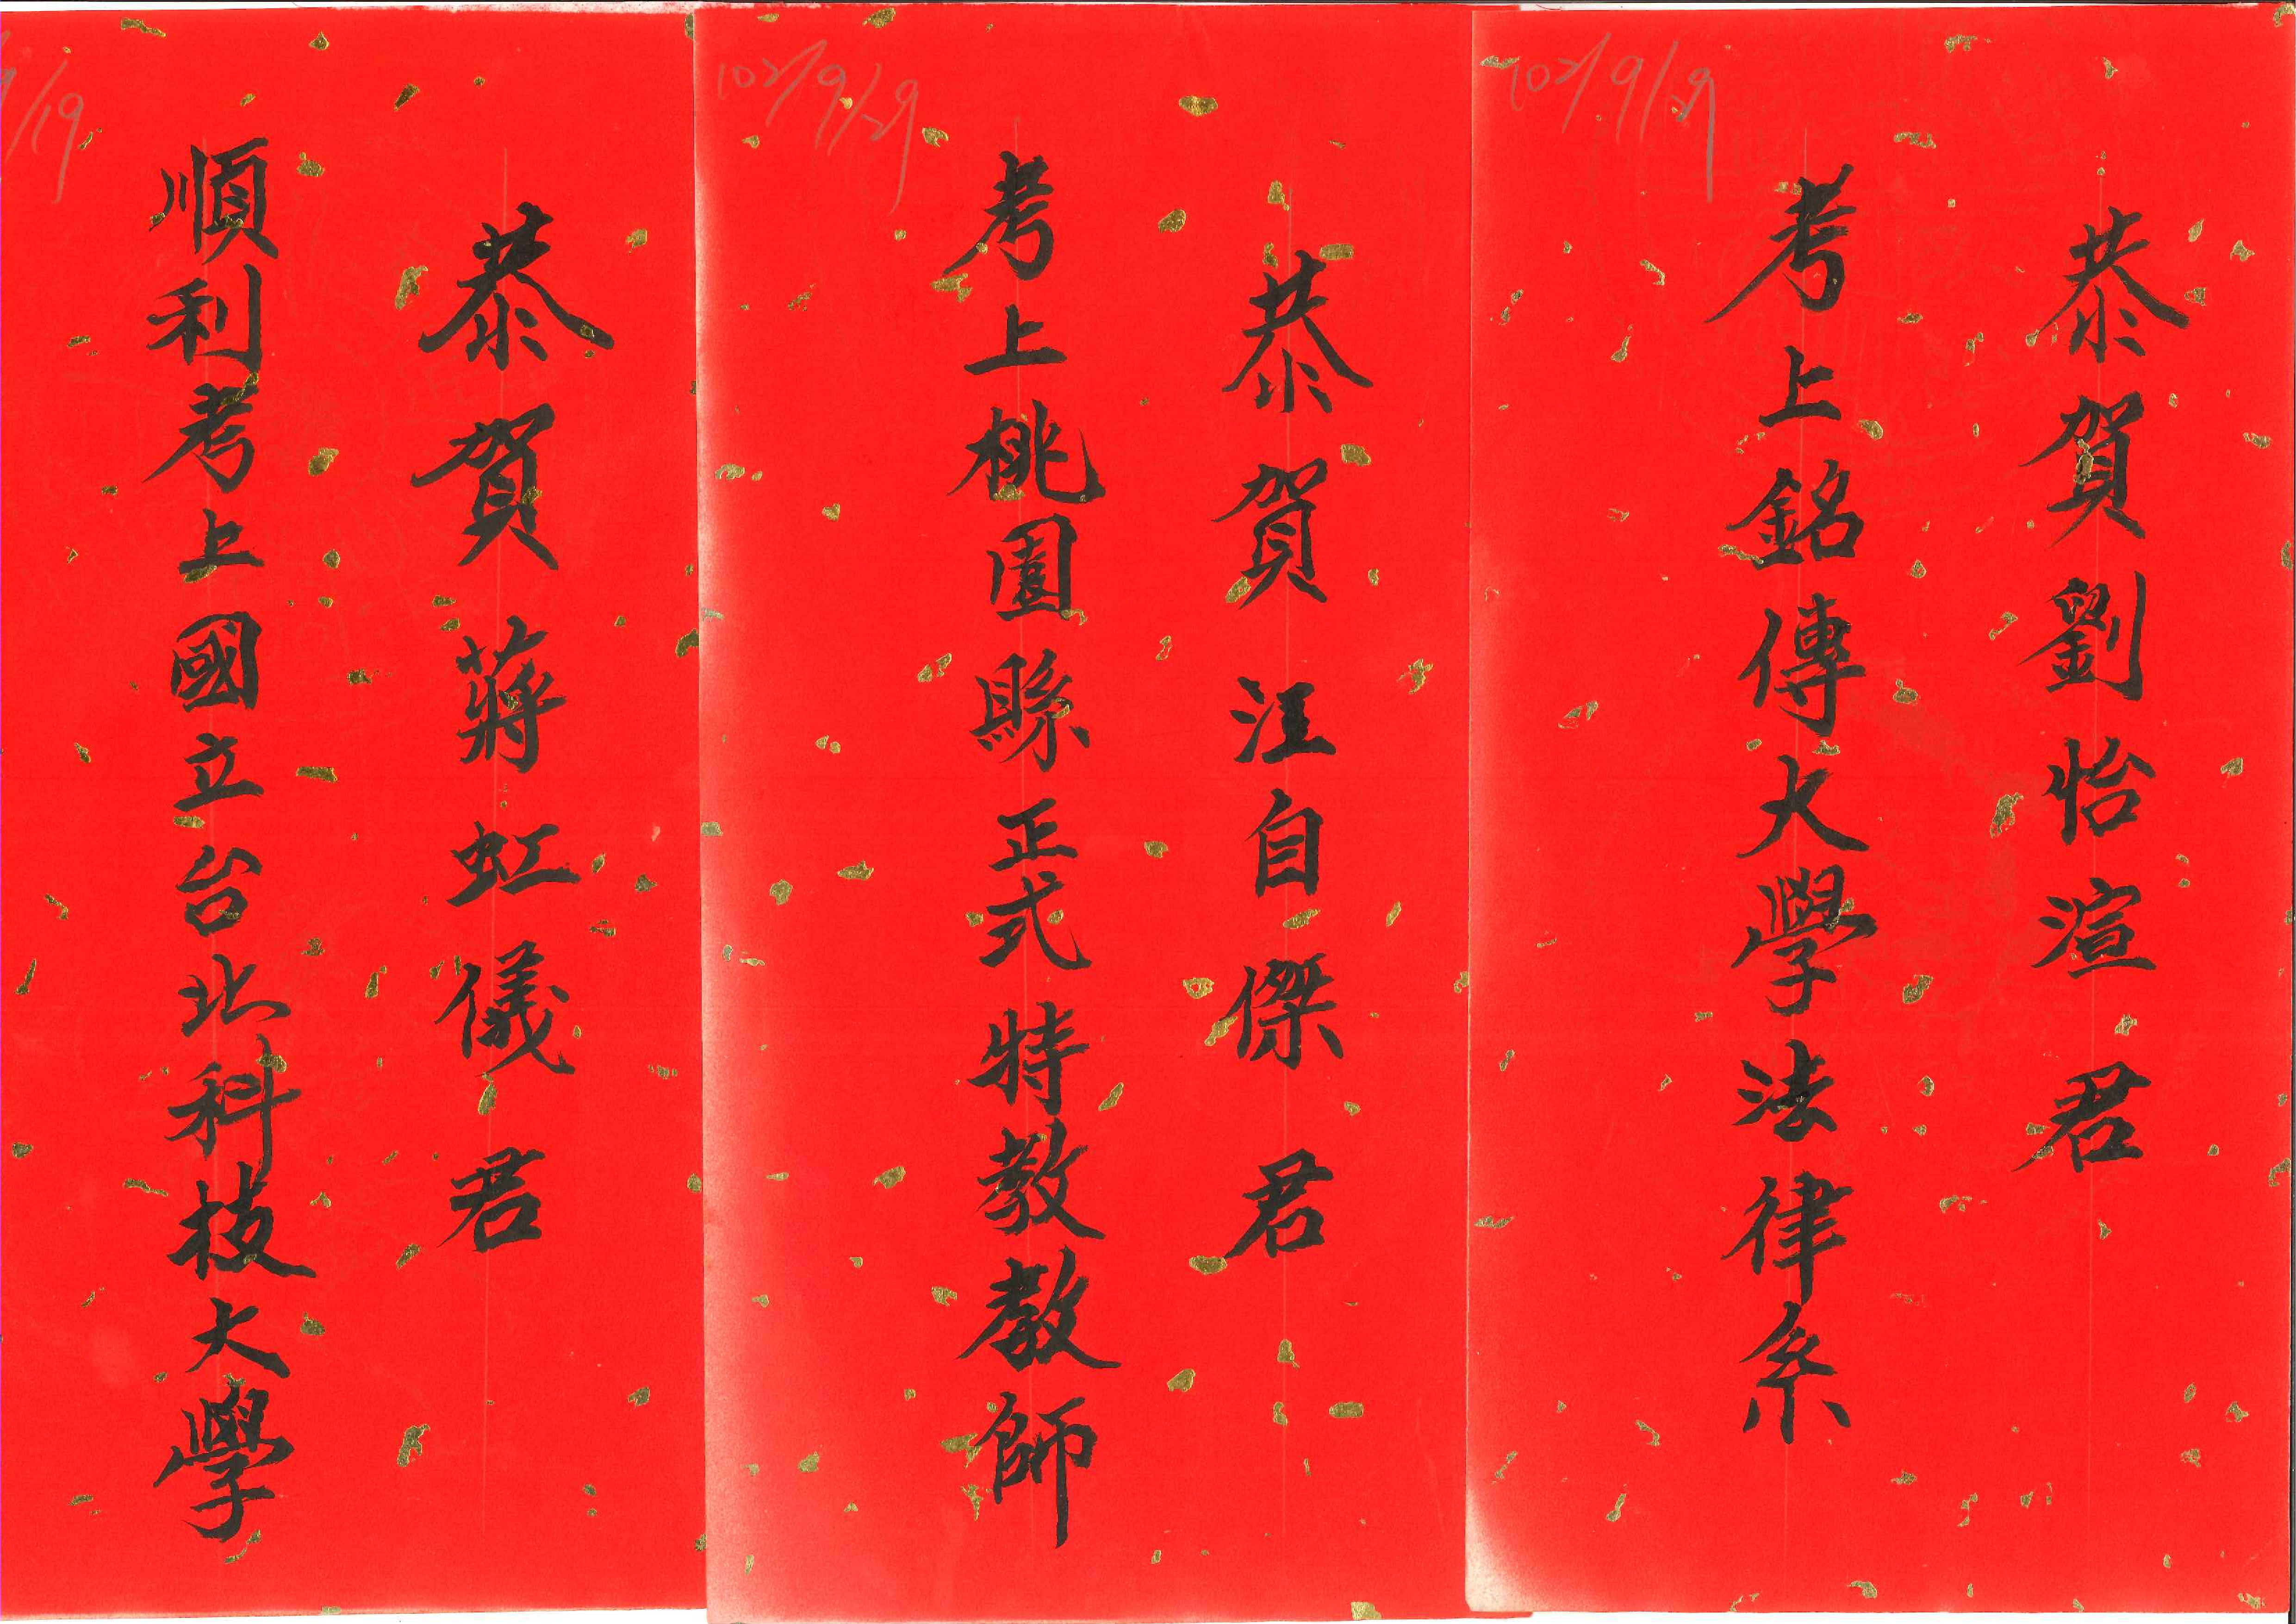 102/9/29
恭賀劉怡渲君
考上銘傳大學法律系
102/9/29
恭賀汪自傑君
考上桃園縣正式特教教師
/19
恭賀蔣虹儀君
順利考上國立台北科技大學